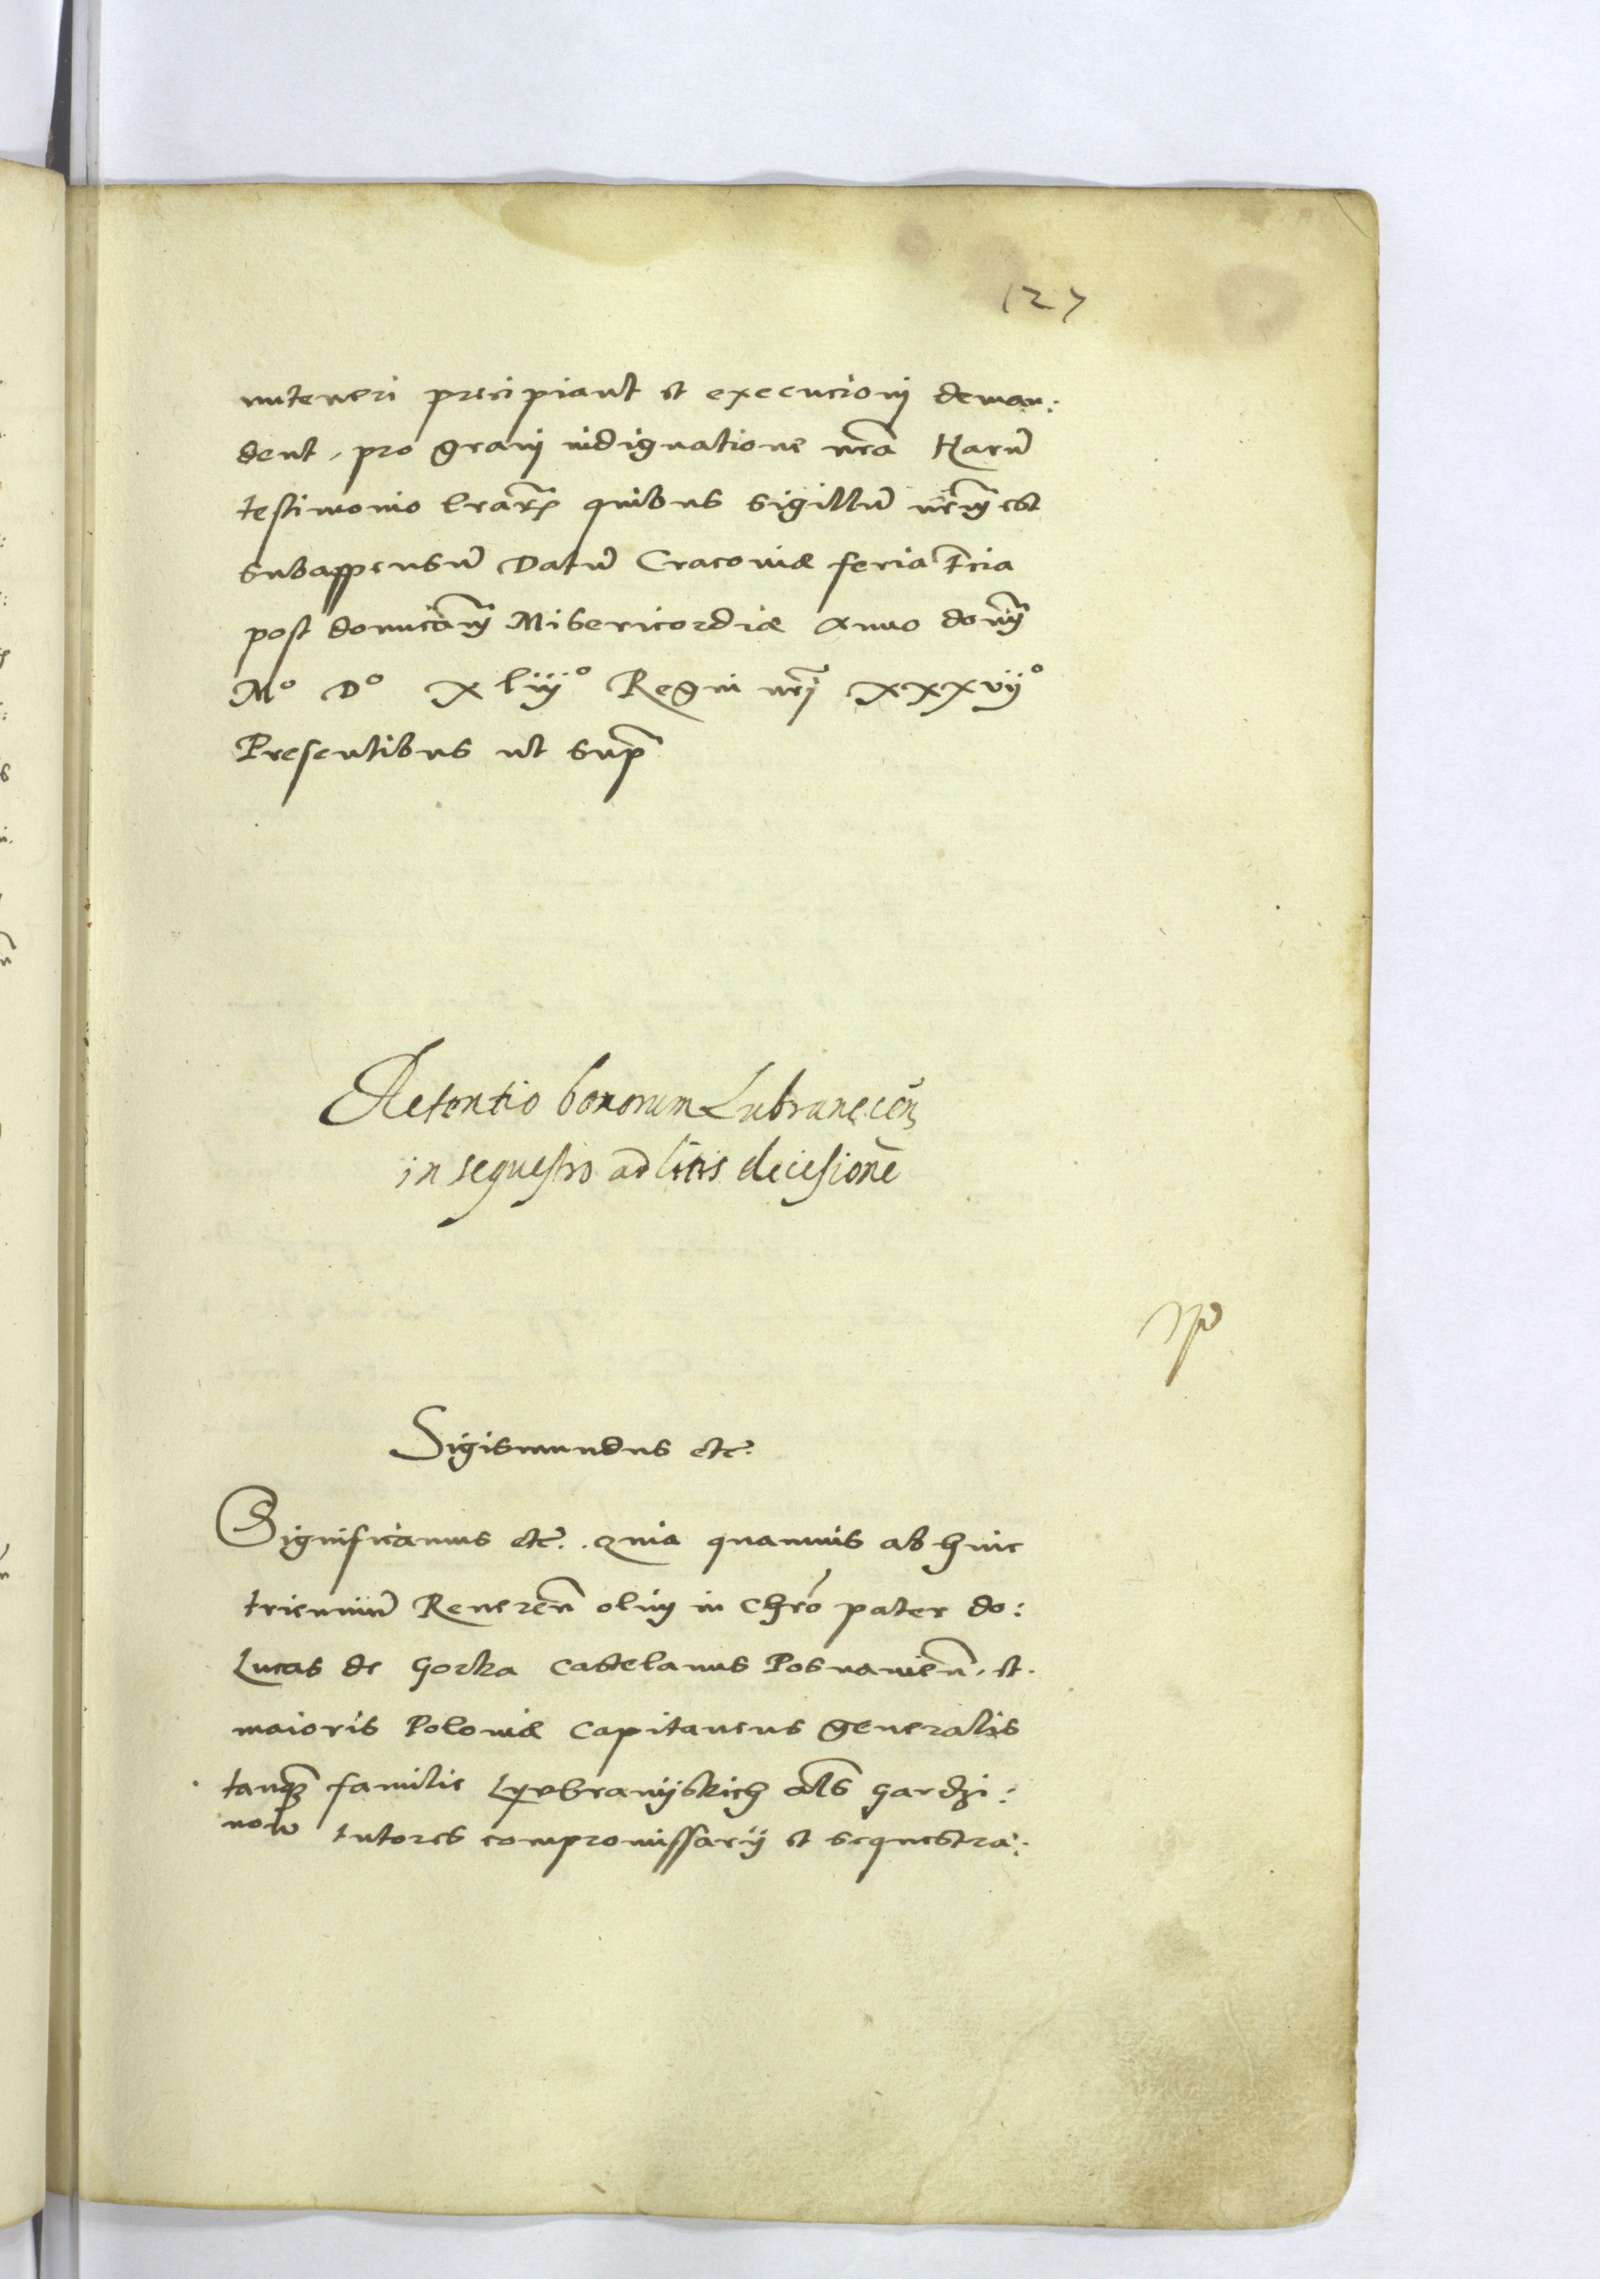 127
nuteneri precipiant et execucioni deman:
dent, pro gravj indignatione nrã Harũ
testimonio lrarʒ quibus sigillũ nrm̃ est
subappensũ Datũ Cracoviæ feria t̃cia
post donucam̃ Misericordiæ Anno dom̃
Mº Dº xliijº Regni nrj̃ xxxvijº
Presentibus ut sup̃
Retentio bonorum Lubrane cen̄
in sequestro ad litis decisionē
Sigismundus etc̃.
Significamus etc̃. Quia quamuis ab hinc
trienniũ Reueren̄ olim in Chrõ pater do:
Lucas de Gorka Castelanus Posnanien̄. et.
maioris Poloniæ Capitaneus generalis
tanqʒ̃ familie Lubranijskich al̃s Gardzi:
now tutores compromissarij et sequestra: